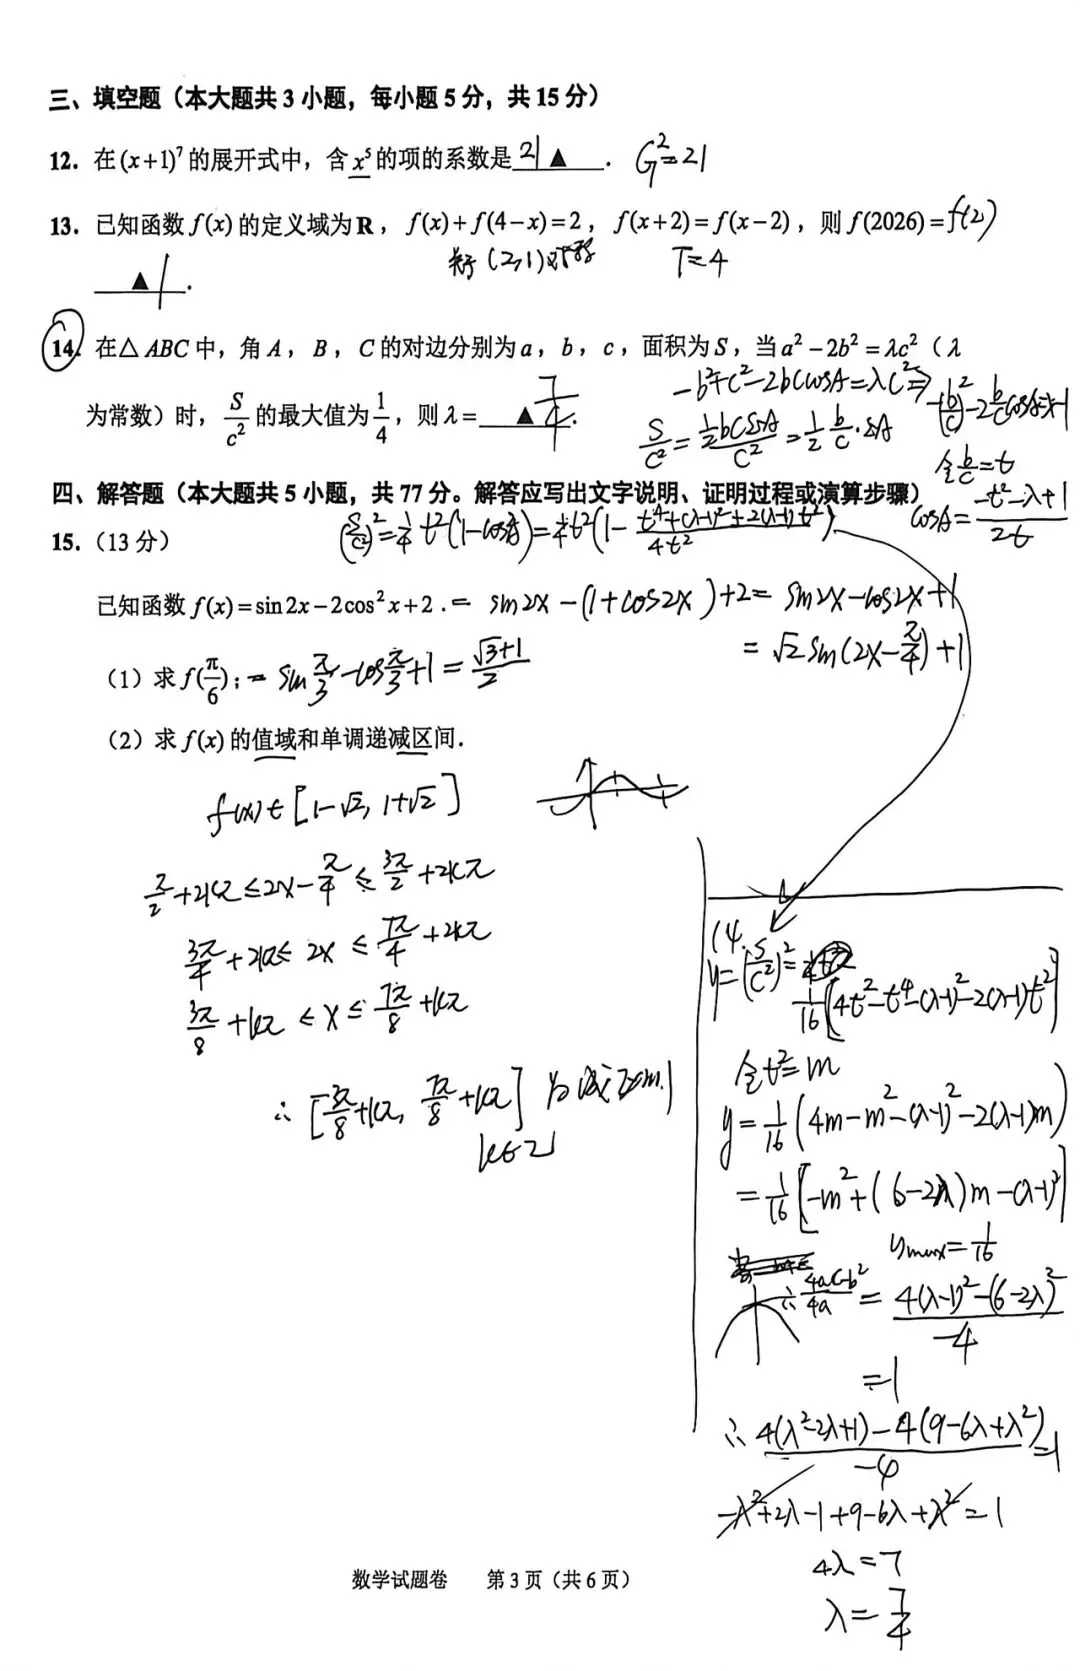 三、填空题（本大题共3小题，每小题5分，共15分）
12. 在(x+1)⁷的展开式中，含x⁵的项的系数是 21▲ . C₇²=21
13. 已知函数f(x)的定义域为R，f(x)+f(4-x)=2，f(x+2)=f(x-2)，则f(2026)=f(2)
关于(2,1)对称 T=4
▲1.
14. 在△ABC中，角A，B，C的对边分别为a，b，c，面积为S，当a²-2b²=λc²（λ
-b²+c²-2bccosA=λc²⇒ -(b/c)²-2b/c cosA=λ-1
为常数）时，S/c²的最大值为1/4，则λ=▲ 7/4.
S/c²=½bcsinA/c²=½ b/c·sinA
令b/c=t
四、解答题（本大题共5小题，共77分。解答应写出文字说明、证明过程或演算步骤）
cosA=(-t²-λ+1)/2t
(S/c²)²=¼t²(1-cos²A)=¼t²(1-(t⁴+(λ-1)²+2(λ-1)t²)/4t²)
15.（13分）
已知函数f(x)=sin2x-2cos²x+2. = sin2x-(1+cos2x)+2= sin2x-cos2x+1
= √2sin(2x-π/4)+1
（1）求f(π/6); = sinπ/3-cosπ/3+1=(√3+1)/2
（2）求f(x)的值域和单调递减区间.
f(x)∈[1-√2, 1+√2]
π/2+2kπ≤2x-π/4≤3π/2+2kπ
3π/4+2kπ≤2x≤7π/4+2kπ
3π/8+kπ≤x≤7π/8+kπ
∴[3π/8+kπ, 7π/8+kπ]为减区间
k∈Z
14.
y=(S/c²)²=
1/16[4t²-t⁴-(λ-1)²-2(λ-1)t²]
令t²=m
y=1/16(4m-m²-(λ-1)²-2(λ-1)m)
=1/16[-m²+(6-2λ)m-(λ-1)²]
ymax=1/16
∴(4ac-b²)/4a=(4(λ-1)²-(6-2λ)²)/-4
=1
∴(4(λ²-2λ+1)-4(9-6λ+λ²))/-4=1
-λ²+2λ-1+9-6λ+λ²=1
4λ=7
λ=7/4
数学试题卷 第3页（共6页）